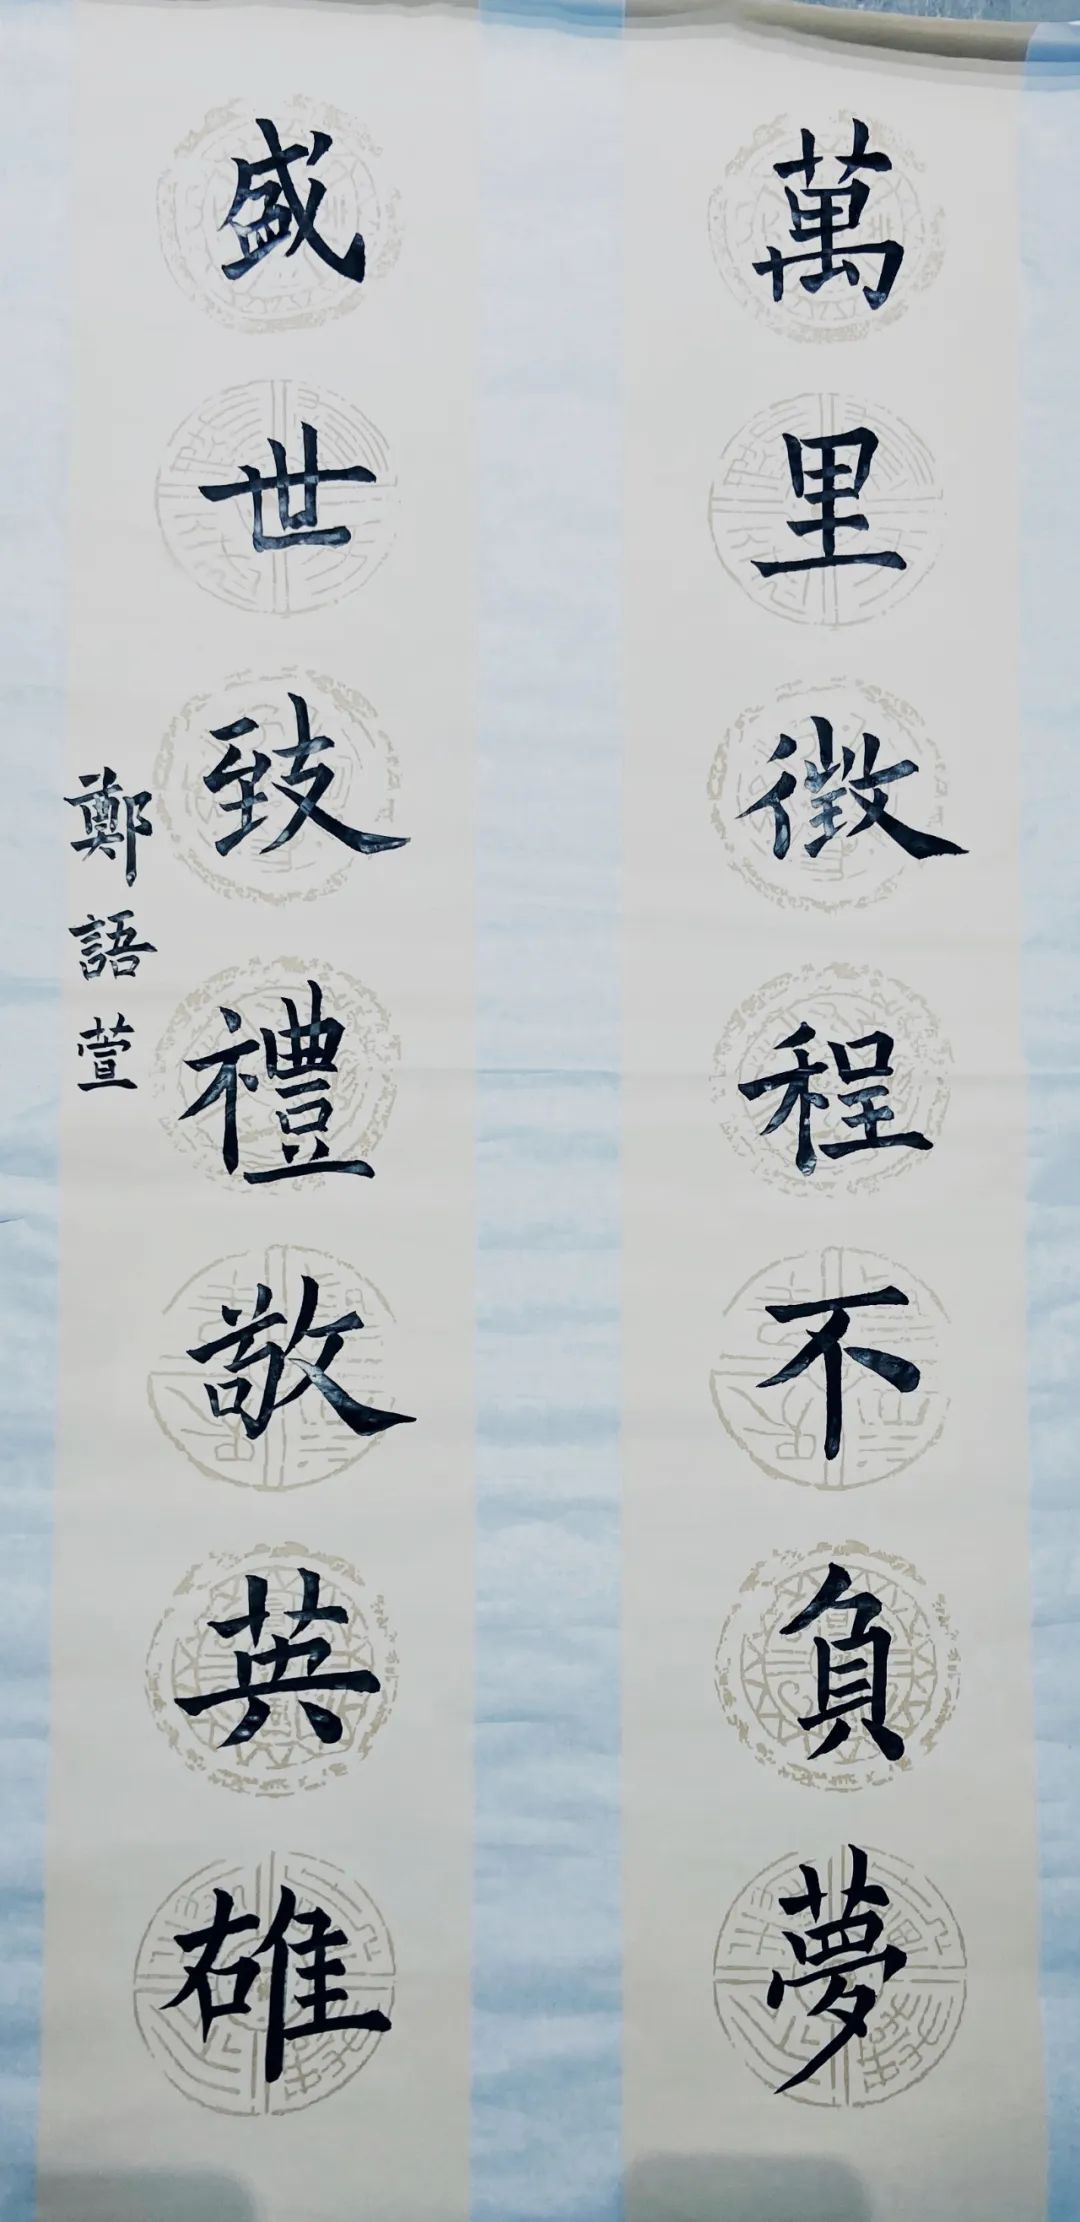 萬里徵程不負夢
盛世致禮敬英雄
鄭語萱